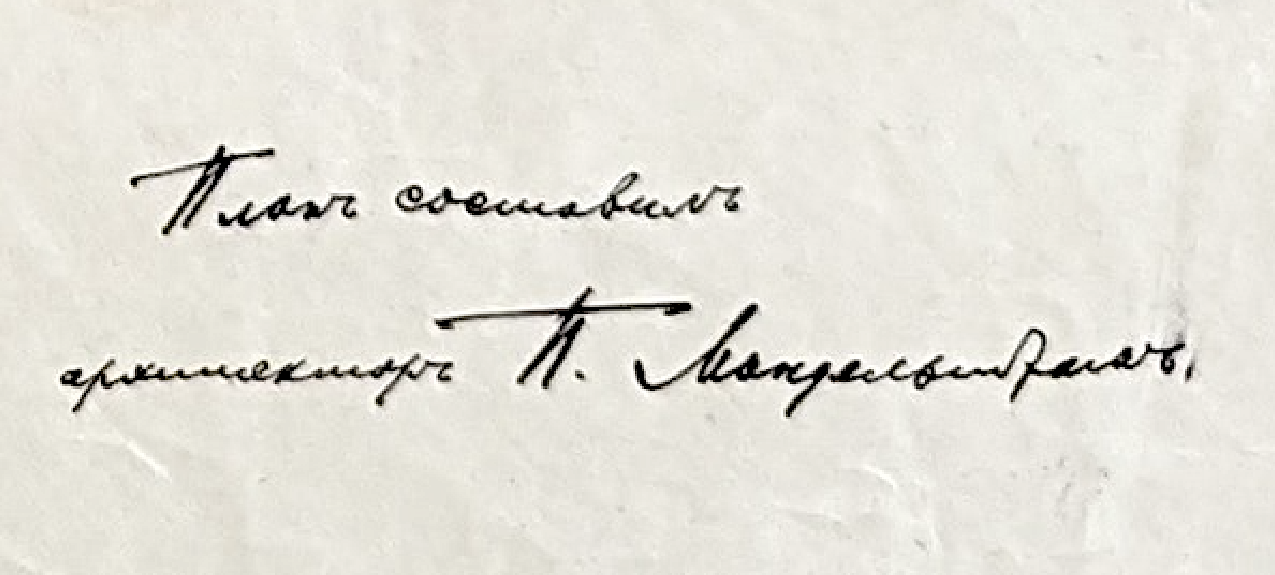 Планъ составилъ
архитекторъ П. Мандельштамъ.